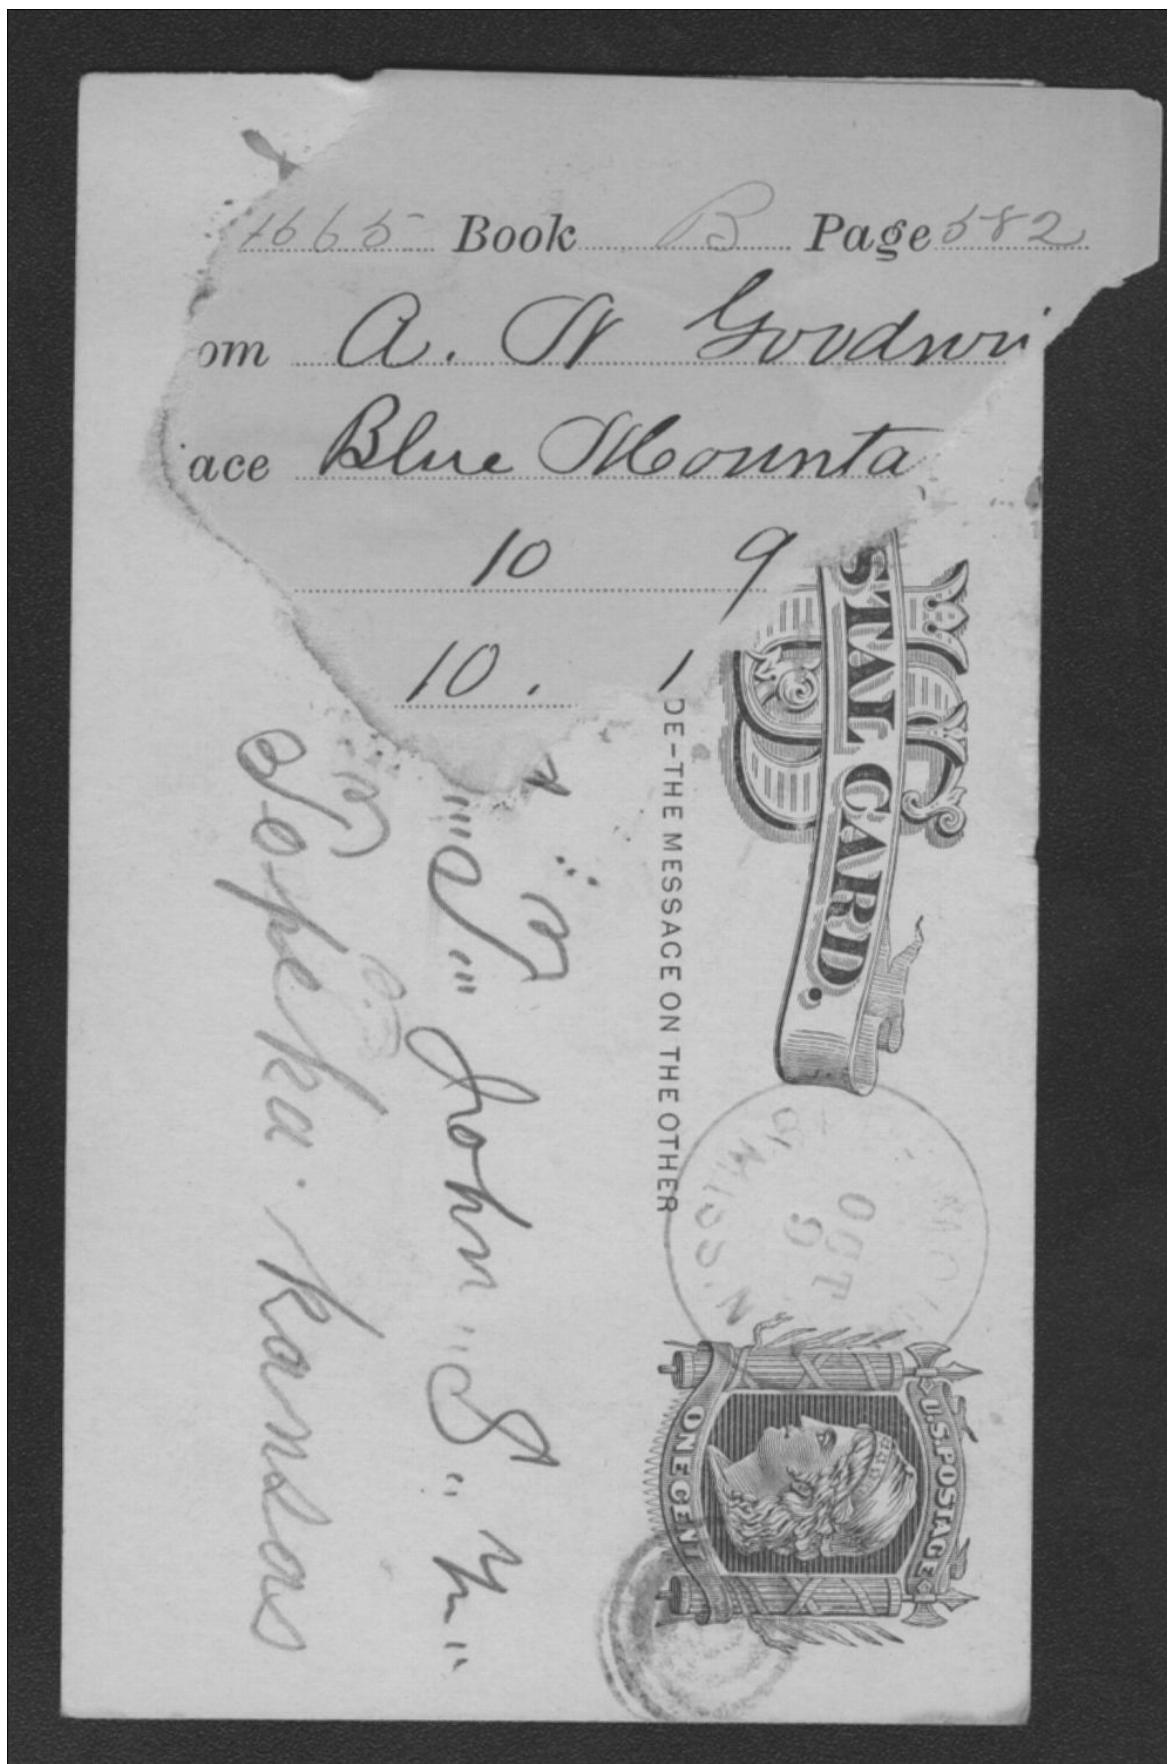 1665 Book B Page 582
om A. N Goodwi
ace Blue Mounta
10 9
10. 1
STAL CARD.
DE-THE MESSAGE ON THE OTHER
U.S. POSTAGE
ONE CENT
OCT
9
MISS.
John S.
Topeka. Kansas